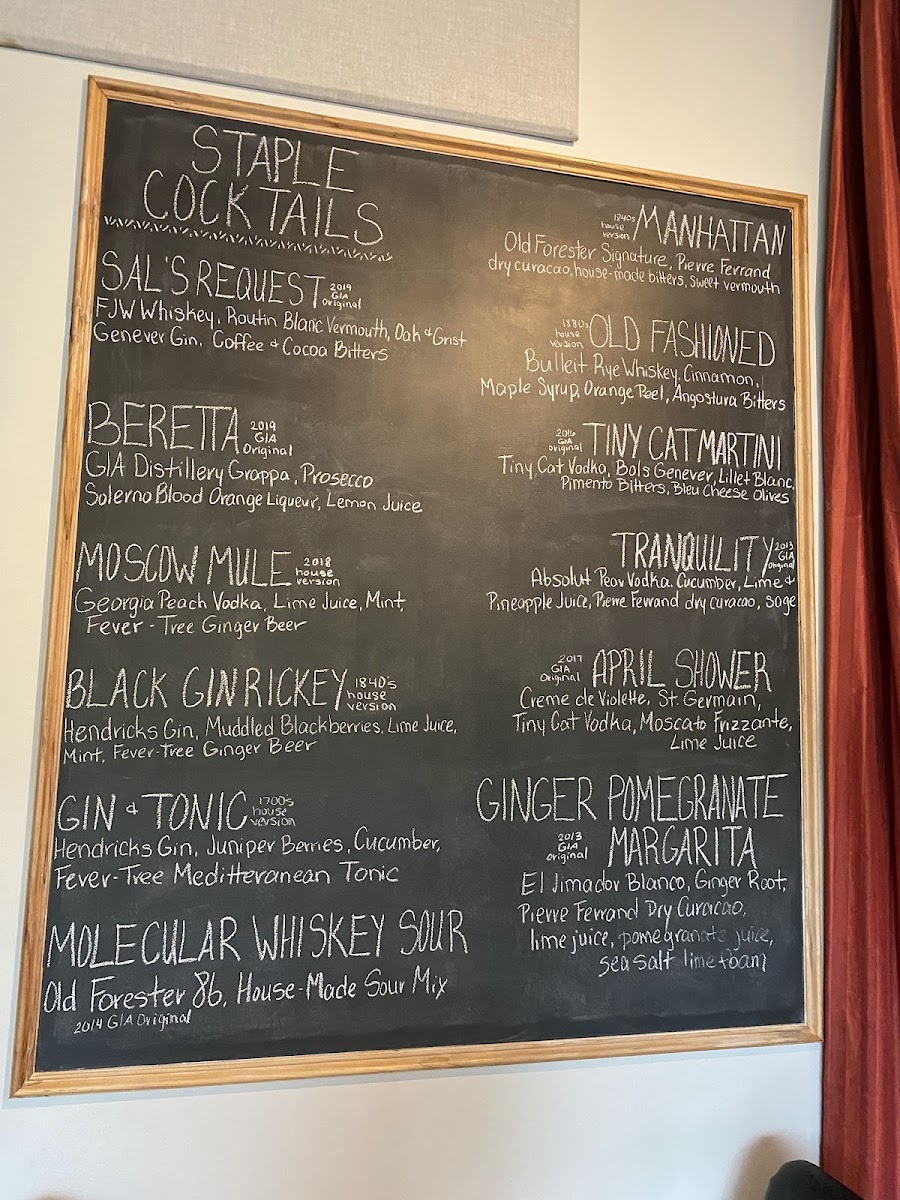 STAPLE
COCKTAILS
SAL'S REQUEST 2019 GIA Original
FJW Whiskey, Routin Blanc Vermouth, Oak & Grist
Genever Gin, Coffee & Cocoa Bitters
BERETTA 2019 GIA Original
GIA Distillery Grappa, Prosecco
Solerno Blood Orange Liqueur, Lemon Juice
MOSCOW MULE 2018 house version
Georgia Peach Vodka, Lime Juice, Mint,
Fever-Tree Ginger Beer
BLACK GIN RICKEY 1840's house version
Hendricks Gin, Muddled Blackberries, Lime Juice,
Mint, Fever-Tree Ginger Beer
GIN & TONIC 1700's house version
Hendricks Gin, Juniper Berries, Cucumber,
Fever-Tree Meditteranean Tonic
MOLECULAR WHISKEY SOUR
Old Forester 86, House-Made Sour Mix
2014 GIA Original
1840s house version MANHATTAN
Old Forester Signature, Pierre Ferrand
dry curacao, house-made bitters, sweet vermouth
1880s house version OLD FASHIONED
Bulleit Rye Whiskey, Cinnamon,
Maple Syrup, Orange Peel, Angostura Bitters
2016 GIA Original TINY CAT MARTINI
Tiny Cat Vodka, Bols Genever, Lillet Blanc,
Pimento Bitters, Bleu Cheese Olives
TRANQUILITY 2013 GIA Original
Absolut Pear Vodka, Cucumber, Lime &
Pineapple Juice, Pierre Ferrand dry curacao, sage
2017 GIA Original APRIL SHOWER
Creme de Violette, St. Germain,
Tiny Cat Vodka, Moscato Frizzante,
Lime Juice
GINGER POMEGRANATE
2013 GIA original MARGARITA
El Jimador Blanco, Ginger Root,
Pierre Ferrand Dry Curacao,
lime juice, pomegranate juice,
sea salt lime foam